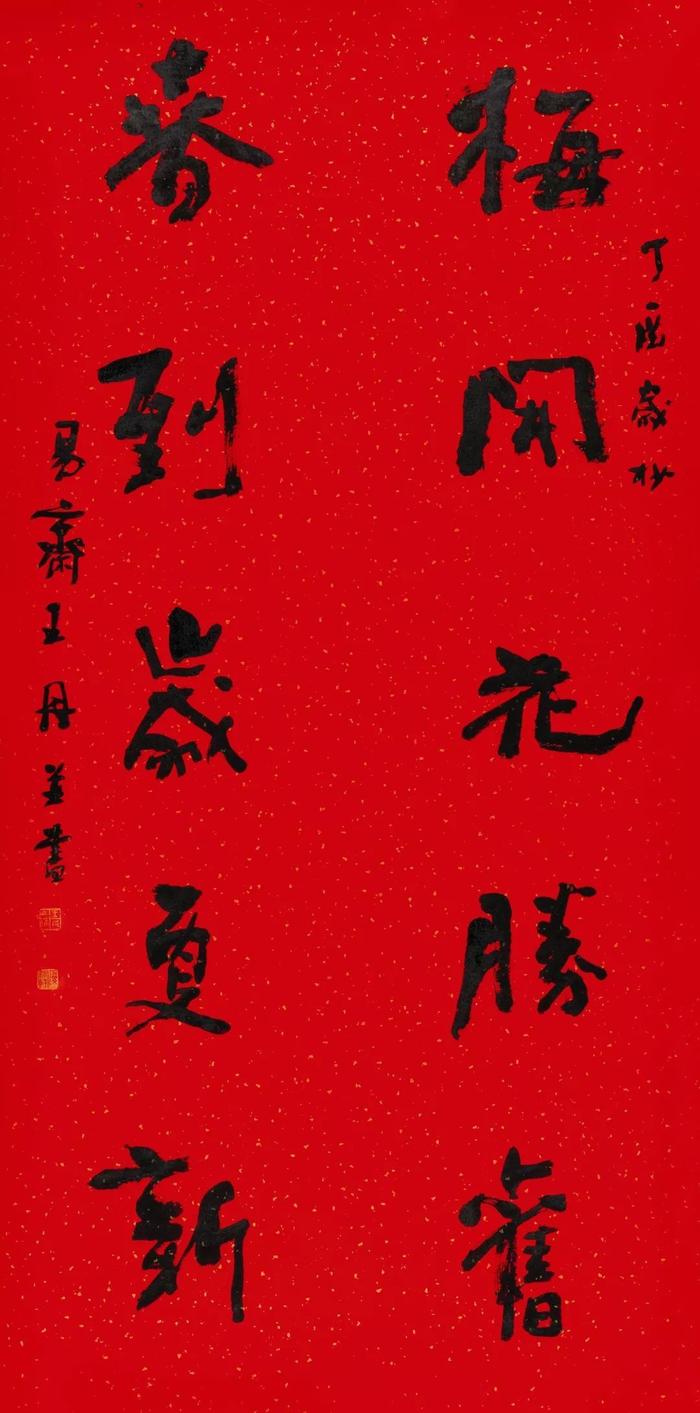 丁酉歲杪
梅開花勝舊
春到歲更新
易齋王丹並書